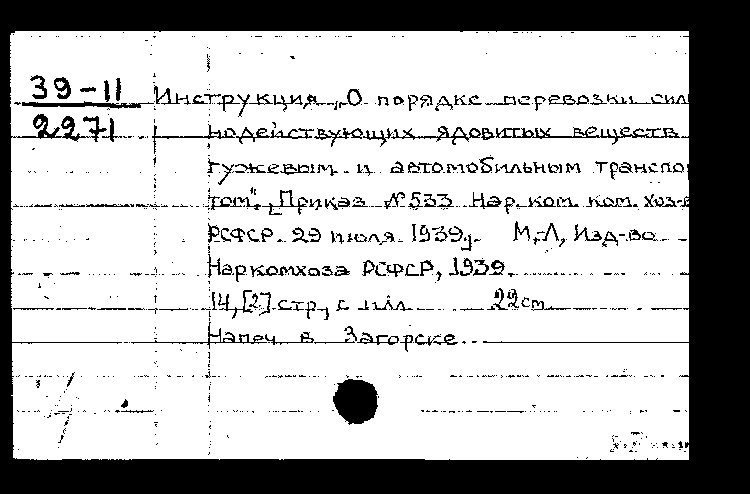 39-11
2271
Инструкция „О порядке перевозки силь
нодействующих ядовитых веществ
гужевым и автомобильным транспор
том". [Приказ №533 Нар. ком. ком. хоз-в
РСФСР. 29 июля 1939г. М,-Л, Изд-во
Наркомхоза РСФСР, 1939.
14, [2] стр, с илл. 22см.
Напеч. в Загорске.